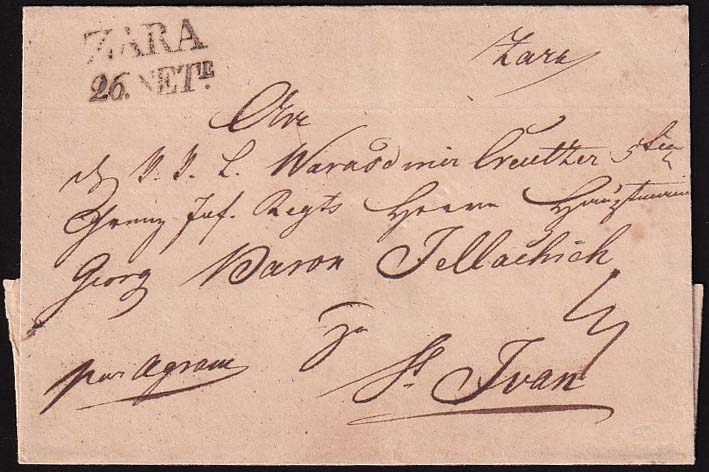 ZARA
26. SETE.
Zara
An
des K. K. Warasdiner Creutzer 5ten
Grenz Inf. Regts Herrn Hauptmann
Georg Baron Jellachich
zu
per Agram St. Ivan